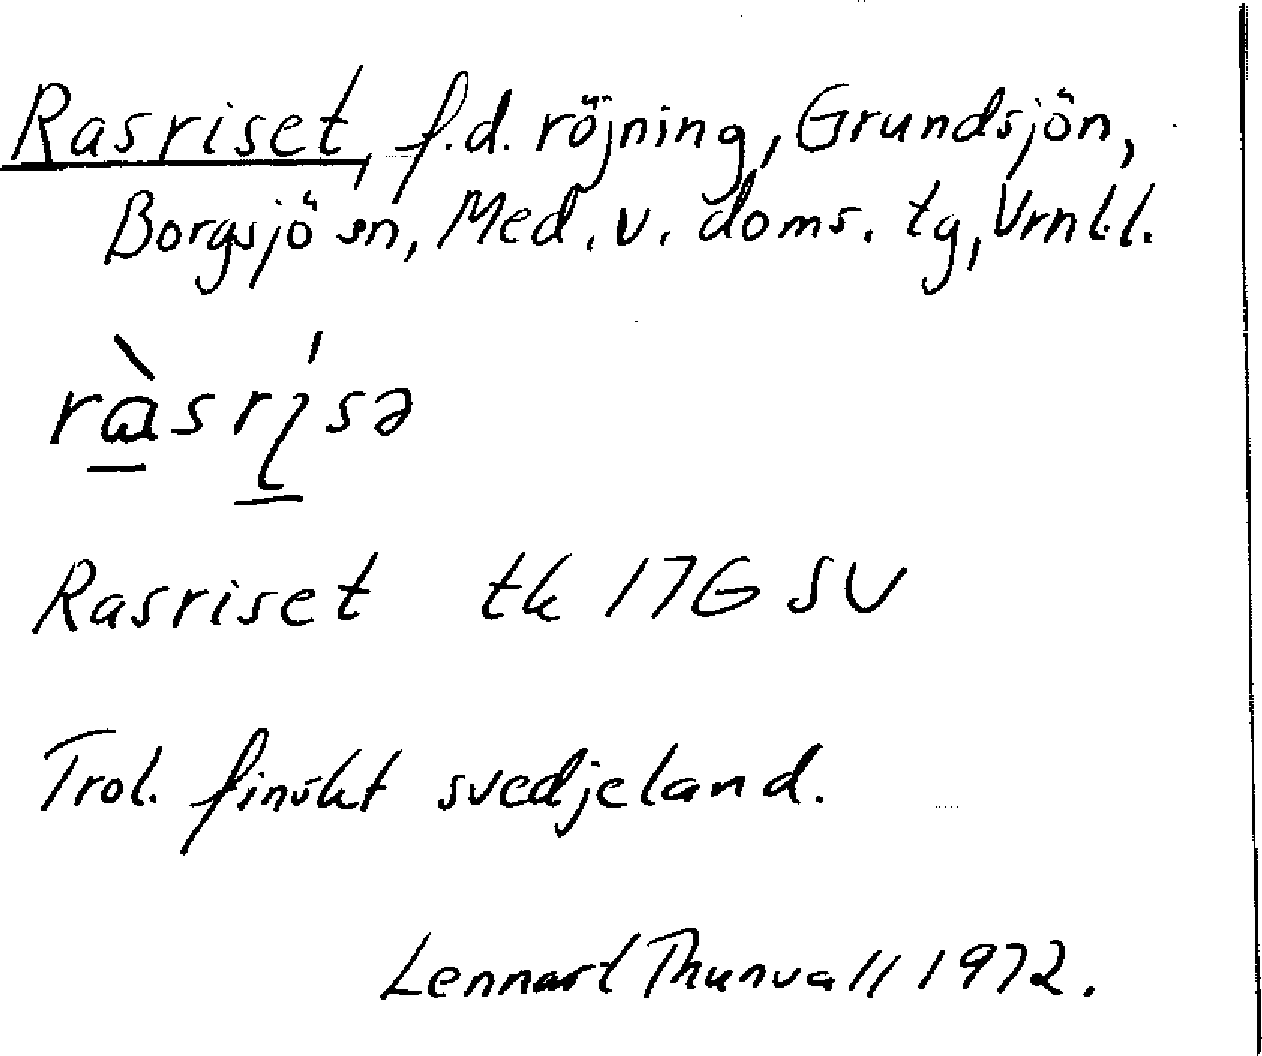 Rasriset, f.d. röjning, Grundsjön,
Borgsjö sn, Med. v. doms. tg, Vrnl.l.
ràsrı̨́sə
Rasriset tk 17G SV
Trol. finskt svedjeland.
Lennart Thunvall 1972.